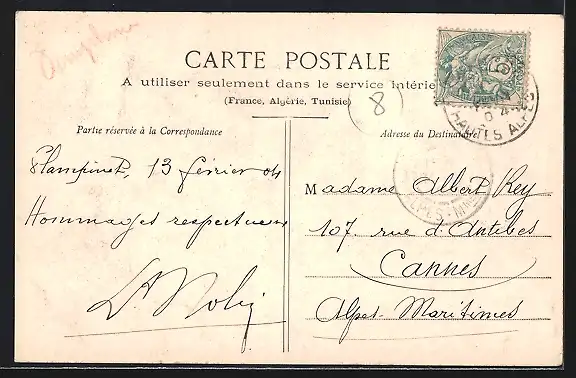 CARTE POSTALE
A utiliser seulement dans le service intérie
(France, Algérie, Tunisie)
8
Partie réservée à la Correspondance
Adresse du Destinataire
5
04
HAUTES ALPES
Plampinet, 13 février 04
Hommages respectueux
Madame Albert Rey
107 rue d'Antibes
Cannes
Alpes-Maritimes